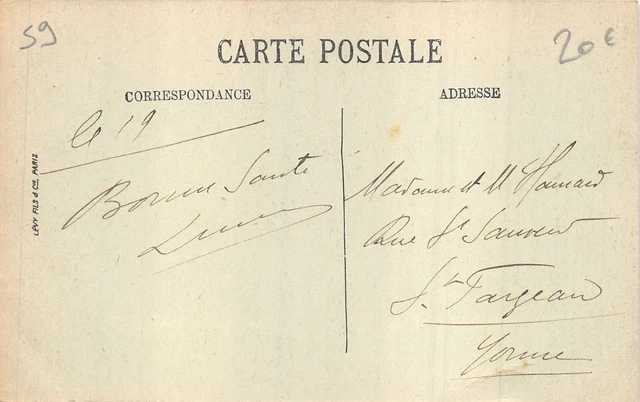 59
20€
CARTE POSTALE
CORRESPONDANCE
ADRESSE
LÉVY FILS & Cie, PARIS
le 19
Bonne Sante
Madame et M
Rue St Sauveur
St Fargeau
Yonne